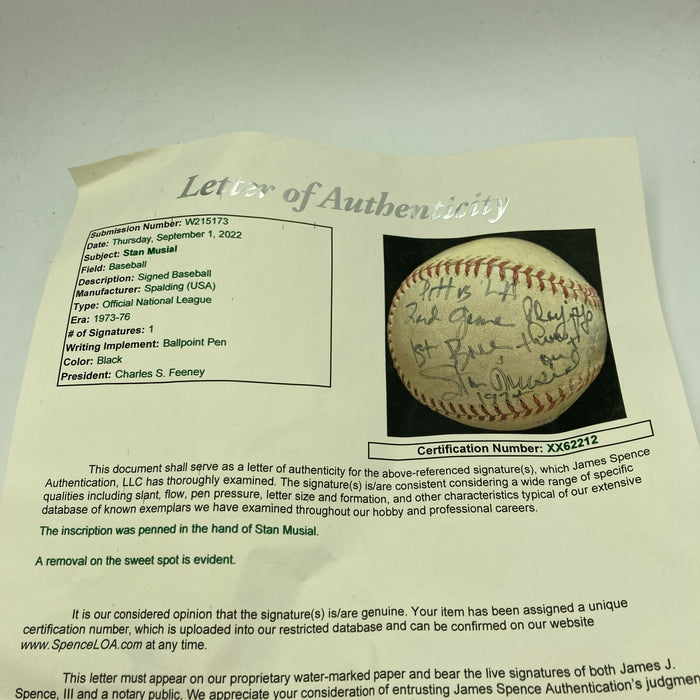 Letter of Authenticity
Submission Number: W215173
Date: Thursday, September 1, 2022
Subject: Stan Musial
Field: Baseball
Description: Signed Baseball
Manufacturer: Spalding (USA)
Type: Official National League
Era: 1973-76
# of Signatures: 1
Writing Implement: Ballpoint Pen
Color: Black
President: Charles S. Feeney
Pitt vs LA
2nd Game Playoffs
1st Ball thrown
out
Stan Musial
1974
Certification Number: XX62212
This document shall serve as a letter of authenticity for the above-referenced signature(s), which James Spence
Authentication, LLC has thoroughly examined. The signature(s) is/are consistent considering a wide range of specific
qualities including slant, flow, pen pressure, letter size and formation, and other characteristics typical of our extensive
database of known exemplars we have examined throughout our hobby and professional careers.
The inscription was penned in the hand of Stan Musial.
A removal on the sweet spot is evident.
It is our considered opinion that the signature(s) is/are genuine. Your item has been assigned a unique
certification number, which is uploaded into our restricted database and can be confirmed on our website
www.SpenceLOA.com at any time.
This letter must appear on our proprietary water-marked paper and bear the live signatures of both James J.
Spence, III and a notary public. We appreciate your consideration of entrusting James Spence Authentication's judgmen